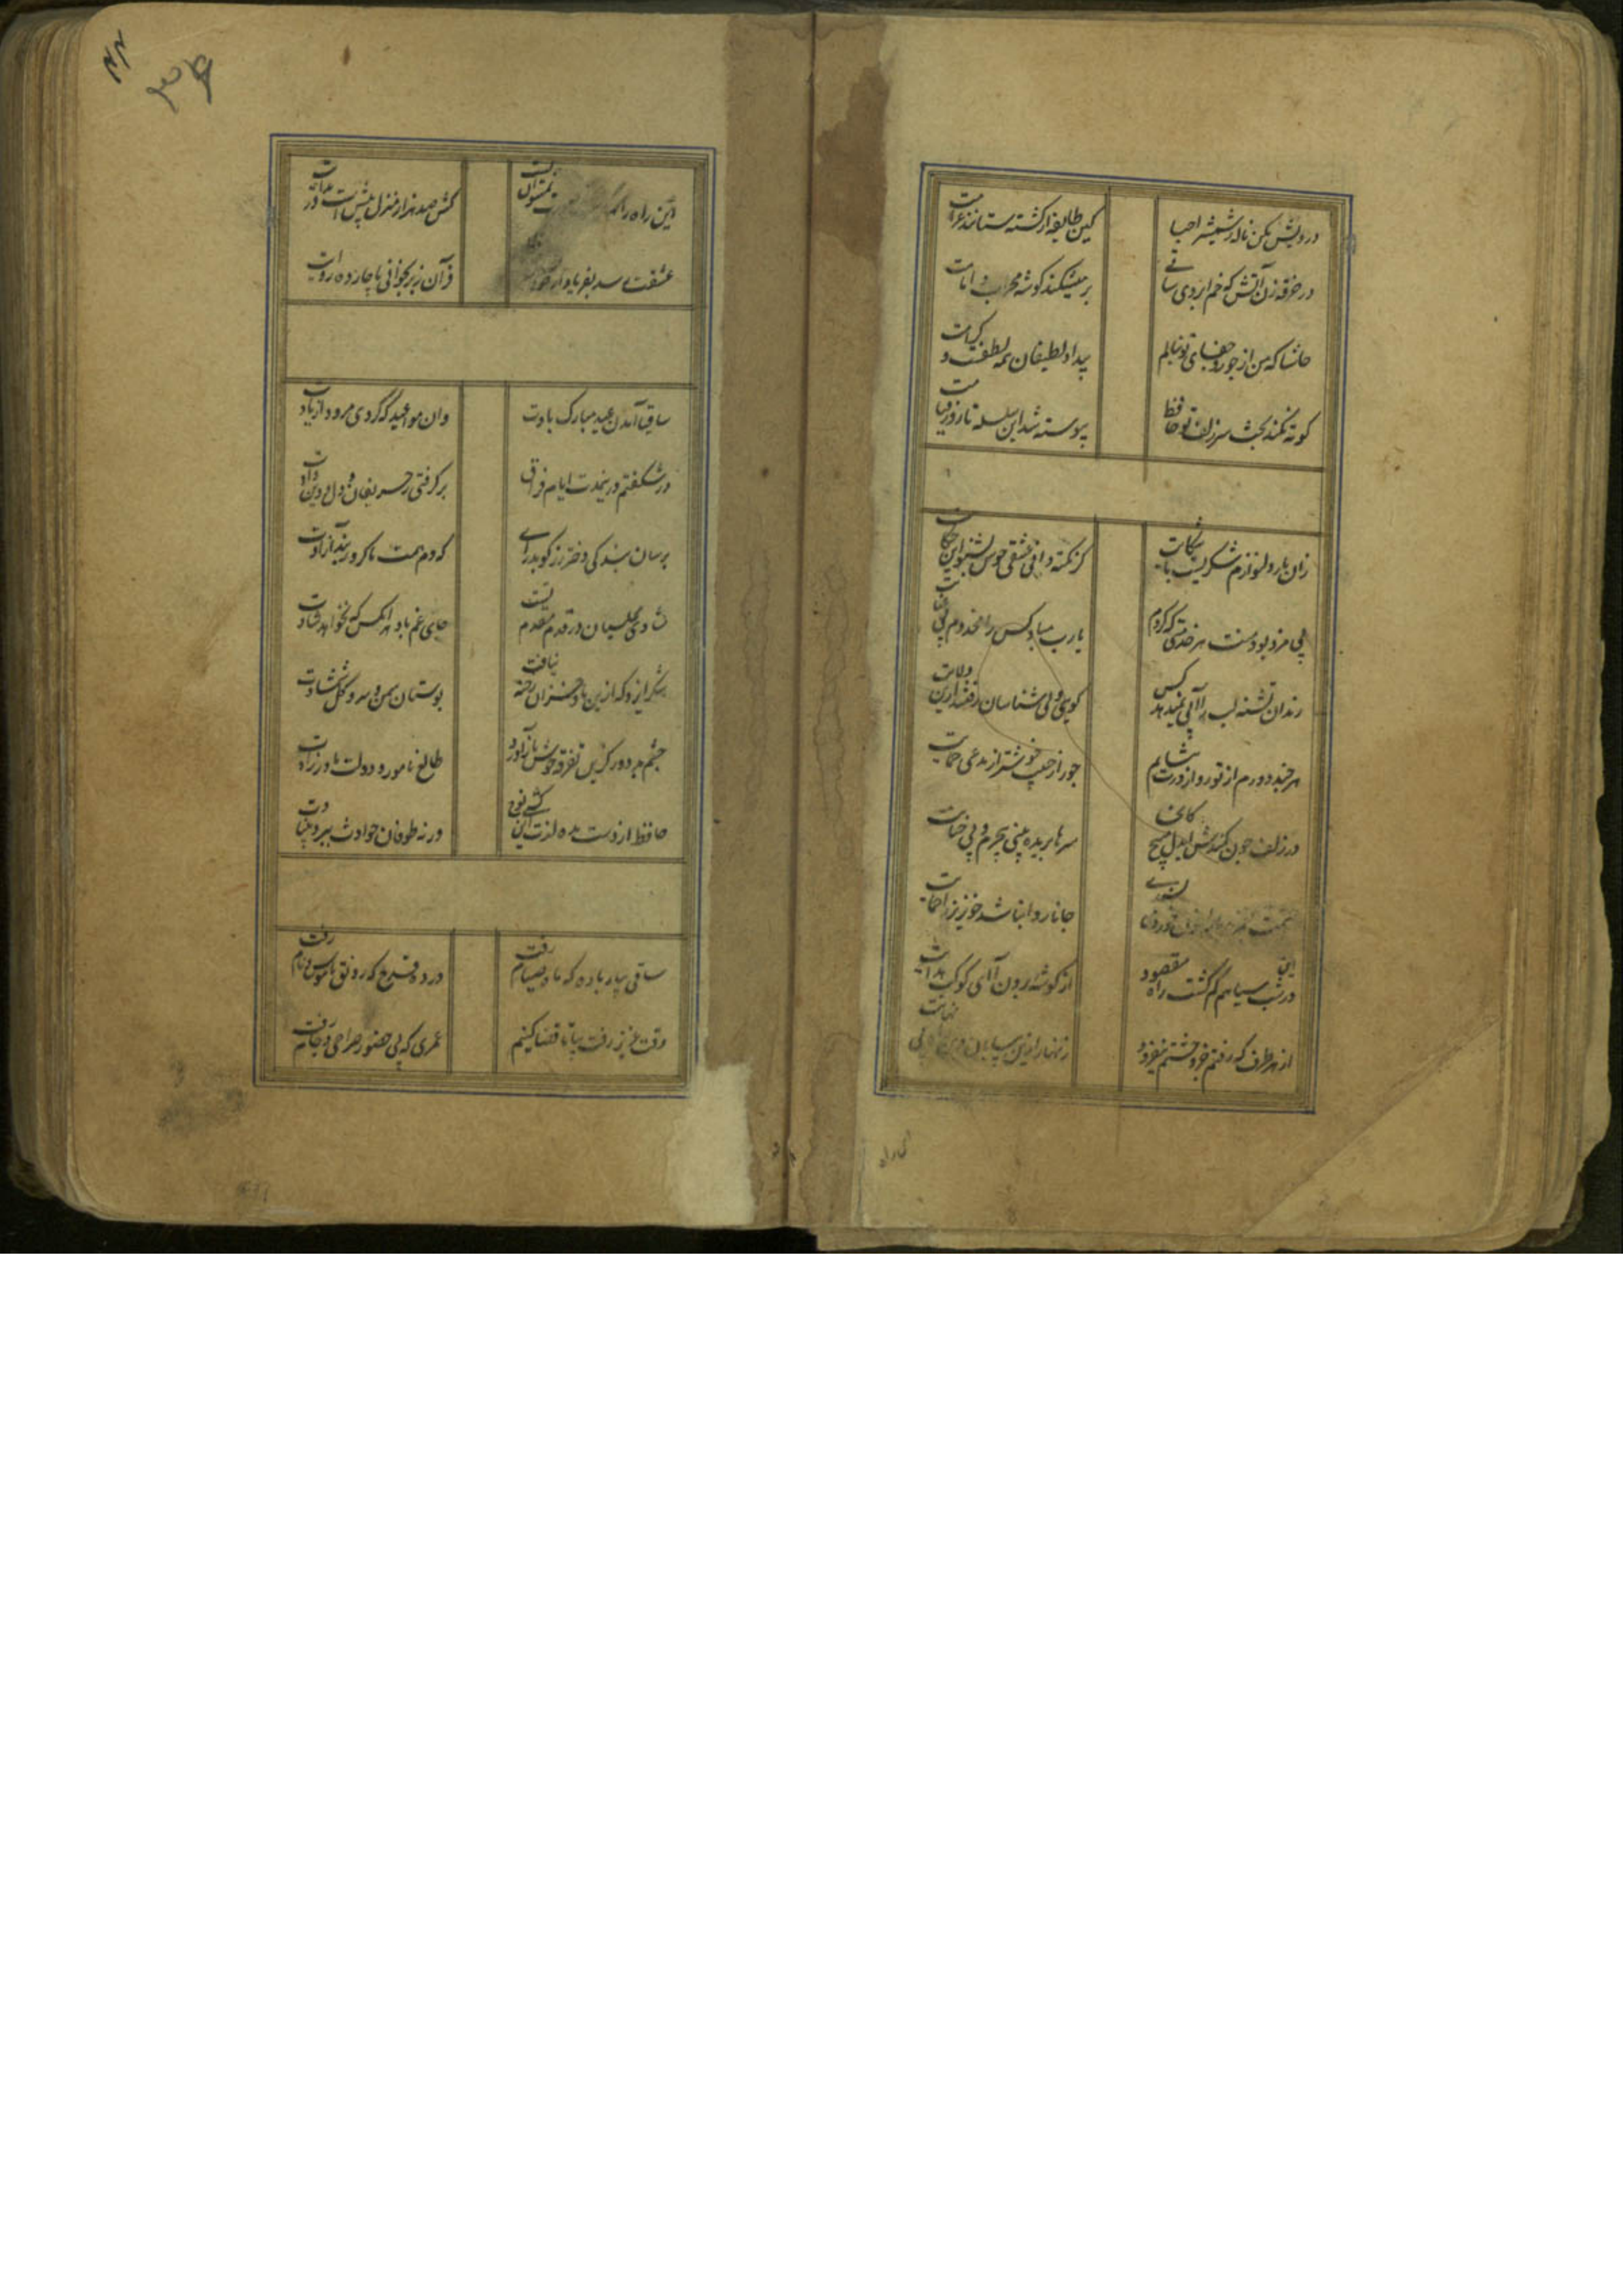 درویش مکن ناله ز شمشیر احبا
کین طایفه از کشته ستانند غرامت
در خرقه زن آتش که خم ابروی ساقی
بر میشکند گوشه محراب امامت
حاشا که من از جور و جفای تو بنالم
بیداد لطیفان همه لطفست و کرامت
کوته نکند بحث سر زلف تو حافظ
پیوسته شد این سلسله تا روز قیامت
زان یار دلنوازم شکریست با شکایت
گر نکته دان عشقی خوش بشنو این حکایت
بی مزد بود و منت هر خدمتی که کردم
یارب مباد کس را مخدوم بی عنایت
رندان تشنه لب را آبی نمیدهد کس
گویی ولی شناسان رفتند ازین ولایت
هر چند دورم از تو رو از درت نتابم
جور از حبیب خوشتر از مدعی حمایت
در زلف چون کمندش ای دل مپیچ کانجا
سرها بریده بینی بیجرم و بی جنایت
جانا روا نباشد خونریز را حمایت
درین شب سیاهم گم گشت راه مقصود
از گوشه برون آ ای کوکب هدایت
از هر طرف که رفتم جز وحشتم نیفزود
زنهار ازین بیابان وین راه بی نهایت
این راه را نهایت صورت نمیتوان بست
کش صد هزار منزل بیش است در بدایت
عشقت رسد بفریاد ار خود
قرآن ز بر بخوانی با چارده روایت
ساقیا آمدن عید مبارک بادت
وان مواعید که کردی مرود از یادت
در شگفتم درین مدت ایام فراق
بر گرفتی ز حریفان دل و دل دادت
برسان بندگی دختر رز گو بدر آی
که دم همت ما کرد ز بند آزادت
شادی مجلسیان در قدم مقدم تست
جای غم باد هر آنکس که نخواهد شادت
شکر ایزد که ازین باد خزان رخنه نیافت
بوستان سمن و سرو و گل و شمشادت
چشم بد دور کزین تفرقه خوش باز آورد
طالع نامور و دولت مادرزادت
حافظ از دست مده لذت این کشتی نوح
ورنه طوفان حوادث ببرد بنیادت
ساقی بیار باده که ماه صیام رفت
در ده قدح که رونق ناموس و نام رفت
وقت عزیز رفت بیا تا قضا کنیم
عمری که بی حضور صراحی و جام رفت
این راه